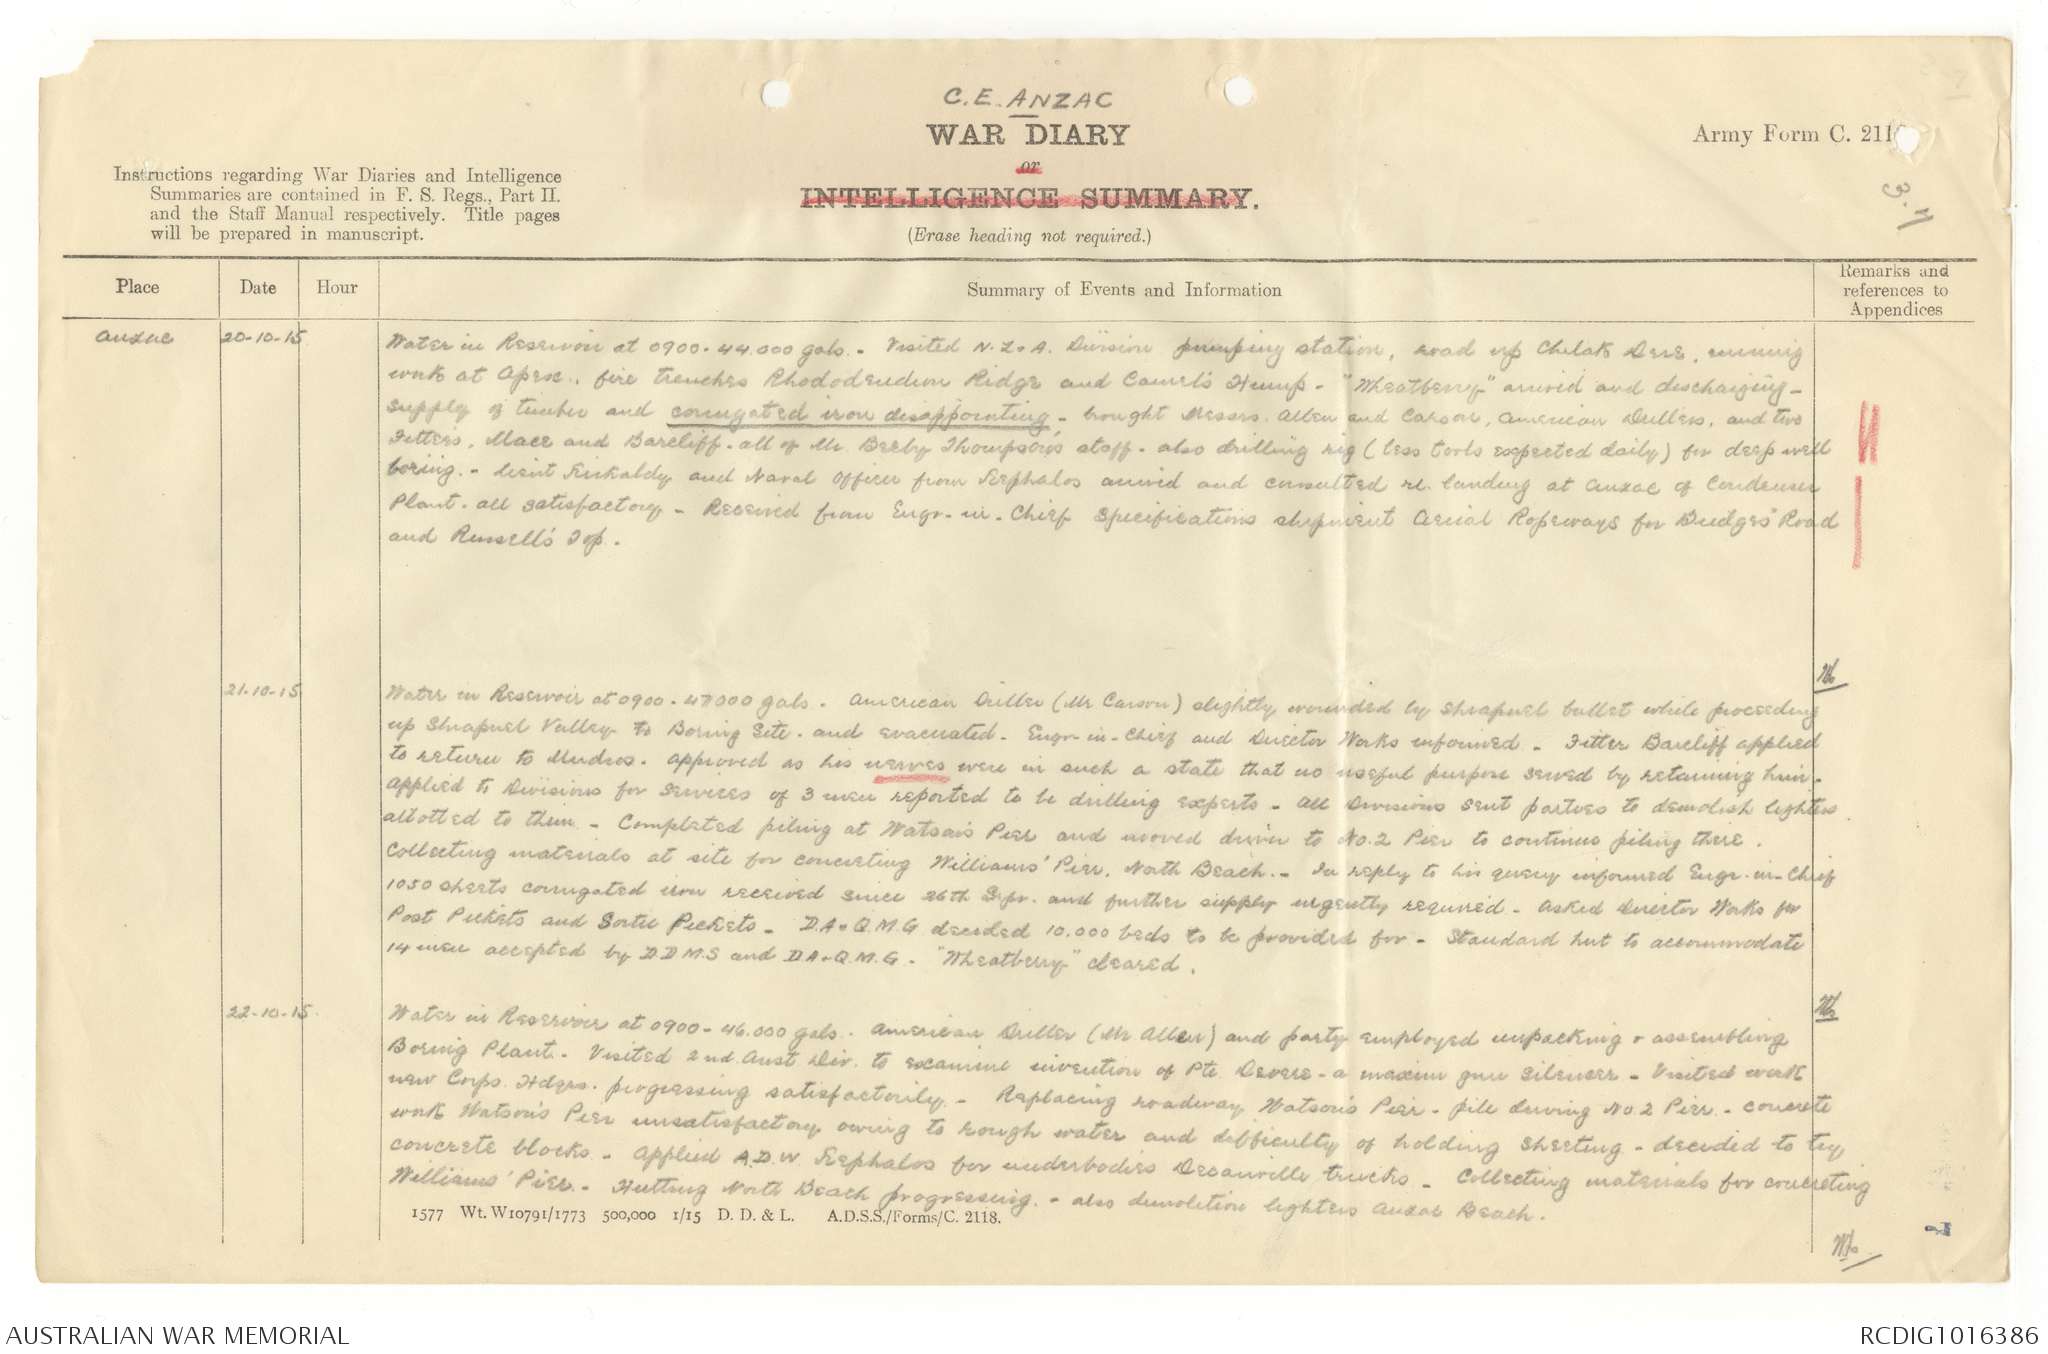 C.E. ANZAC
WAR DIARY
or
INTELLIGENCE SUMMARY.
(Erase heading not required.)
Army Form C. 211
Instructions regarding War Diaries and Intelligence
Summaries are contained in F. S. Regs., Part II.
and the Staff Manual respectively. Title pages
will be prepared in manuscript.
Place
Date
Hour
Summary of Events and Information
Remarks and
references to
Appendices
Anzac
20-10-15
Water in Reservoir at 0900 - 44.000 gals. - Visited N.Z & A. Division pumping station, road up Chilak Dere, mining
work at Apex, fire trenches Rhododendron Ridge and Camel's Hump - "Wheatberry" arrived and discharging -
supply of timber and corrugated iron disappointing - brought Messrs. Allen and Carson, American Drillers, and two
Fitters, Mace and Barcliff - all of Mr Beeby Thompson's staff - also drilling rig (less tools expected daily) for deep well
boring. - Lieut Kirkaldy and Naval Officer from Kephalos arrived and consulted re. landing at Anzac of Condenser
Plant - all satisfactory - Received from Engr-in-Chief specifications shipment Aerial Ropeways for Bridges' Road
and Russell's Top.
21-10-15
Water in Reservoir at 0900 - 47000 gals. - American Driller (Mr Carson) slightly wounded by shrapnel bullet while proceeding
up Shrapnel Valley to Boring Site - and evacuated - Engr-in-Chief and Director Works informed - Fitter Barcliff applied
to return to Mudros - approved as his nerves were in such a state that no useful purpose served by retaining him -
Applied to Divisions for services of 3 men reported to be drilling experts - All Divisions sent parties to demolish lighters
allotted to them - Completed piling at Watson's Pier and moved driver to No.2 Pier to continue piling there.
Collecting materials at site for concreting Williams' Pier, North Beach. - In reply to his query informed Engr-in-Chief
1050 sheets corrugated iron received since 26th Sepr. and further supply urgently required - Asked Director Works for
Post Pickets and Sortie Pickets - D.A & Q.M.G decided 10.000 beds to be provided for - Standard hut to accommodate
14 men accepted by D D M.S and D.A & Q.M.G - "Wheatberry" cleared.
22-10-15
Water in Reservoir at 0900 - 46.000 gals. - American Driller (Mr Allen) and party employed unpacking & assembling
Boring Plant - Visited 2nd Aust Div. to examine invention of Pte. Devere - a maxim gun silencer - Visited work
new Corps. Hdqrs. progressing satisfactorily - Replacing roadway Watson's Pier - pile driving No.2 Pier - concrete
work Watson's Pier unsatisfactory owing to rough water and difficulty of holding sheeting - decided to try
concrete blocks - Applied A.D.W Kephalos for underbodies Decauville trucks - Collecting materials for concreting
Williams' Pier. - Hutting North Beach progressing - also demolition lighters Anzac Beach.
1577 Wt. W10791/1773 500,000 1/15 D. D. & L. A.D.S.S./Forms/C. 2118.
AUSTRALIAN WAR MEMORIAL
RCDIG1016386